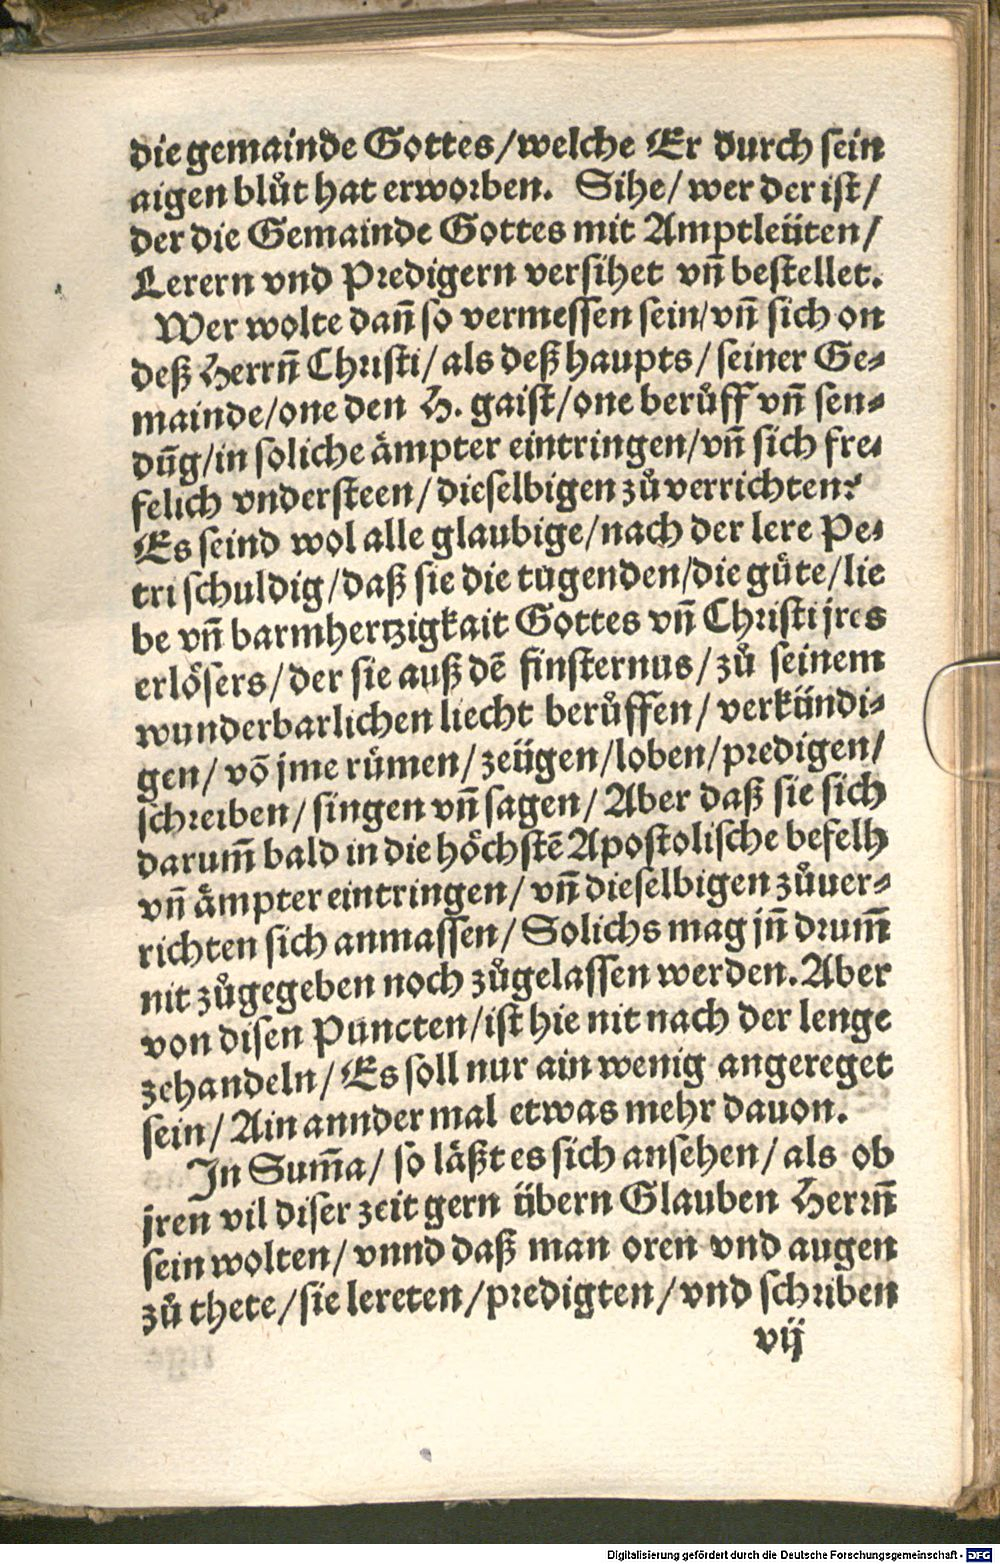 die gemainde Gottes/welche Er durch sein
aigen blůt hat erworben. Sihe/ wer der ist/
der die Gemainde Gottes mit Amptleüten/
Lerern vnd Predigern versihet vñ bestellet.
Wer wolte dañ so vermessen sein/vñ sich on
deß Herrñ Christi/ als deß haupts/ seiner Ge-
mainde/one den H. gaist/one berůff vñ sen-
dũg/in soliche ämpter eintringen/vñ sich fre-
felich vndersteen/dieselbigen zů verrichten?
Es seind wol alle glaubige/nach der lere Pe-
tri schuldig/daß sie die tugenden/die gůte/lie
be vñ barmhertzigkait Gottes vñ Christi jres
erlösers/der sie auß dẽ finsternus/zů seinem
wunderbarlichen liecht berůffen/ verkündi-
gen/ võ jme růmen/zeügen/loben/predigen/
schreiben/singen vñ sagen/ Aber daß sie sich
darum̃ bald in die höchstẽ Apostolische befelh
vñ ämpter eintringen/ vñ dieselbigen zůuer-
richten sich anmassen/ Solichs mag jñ drum̃
nit zůgegeben noch zůgelassen werden. Aber
von disen Puncten/ist hie nit nach der lenge
zehandeln/ Es soll nur ain wenig angereget
sein/ Ain annder mal etwas mehr dauon.
In Sum̃a/ so läßt es sich ansehen/ als ob
jren vil diser zeit gern übern Glauben Herrñ
sein wolten/ vnnd daß man oren vnd augen
zů thete/sie lereten/predigten/vnd schriben
vij
Digitalisierung gefördert durch die Deutsche Forschungsgemeinschaft - DFG